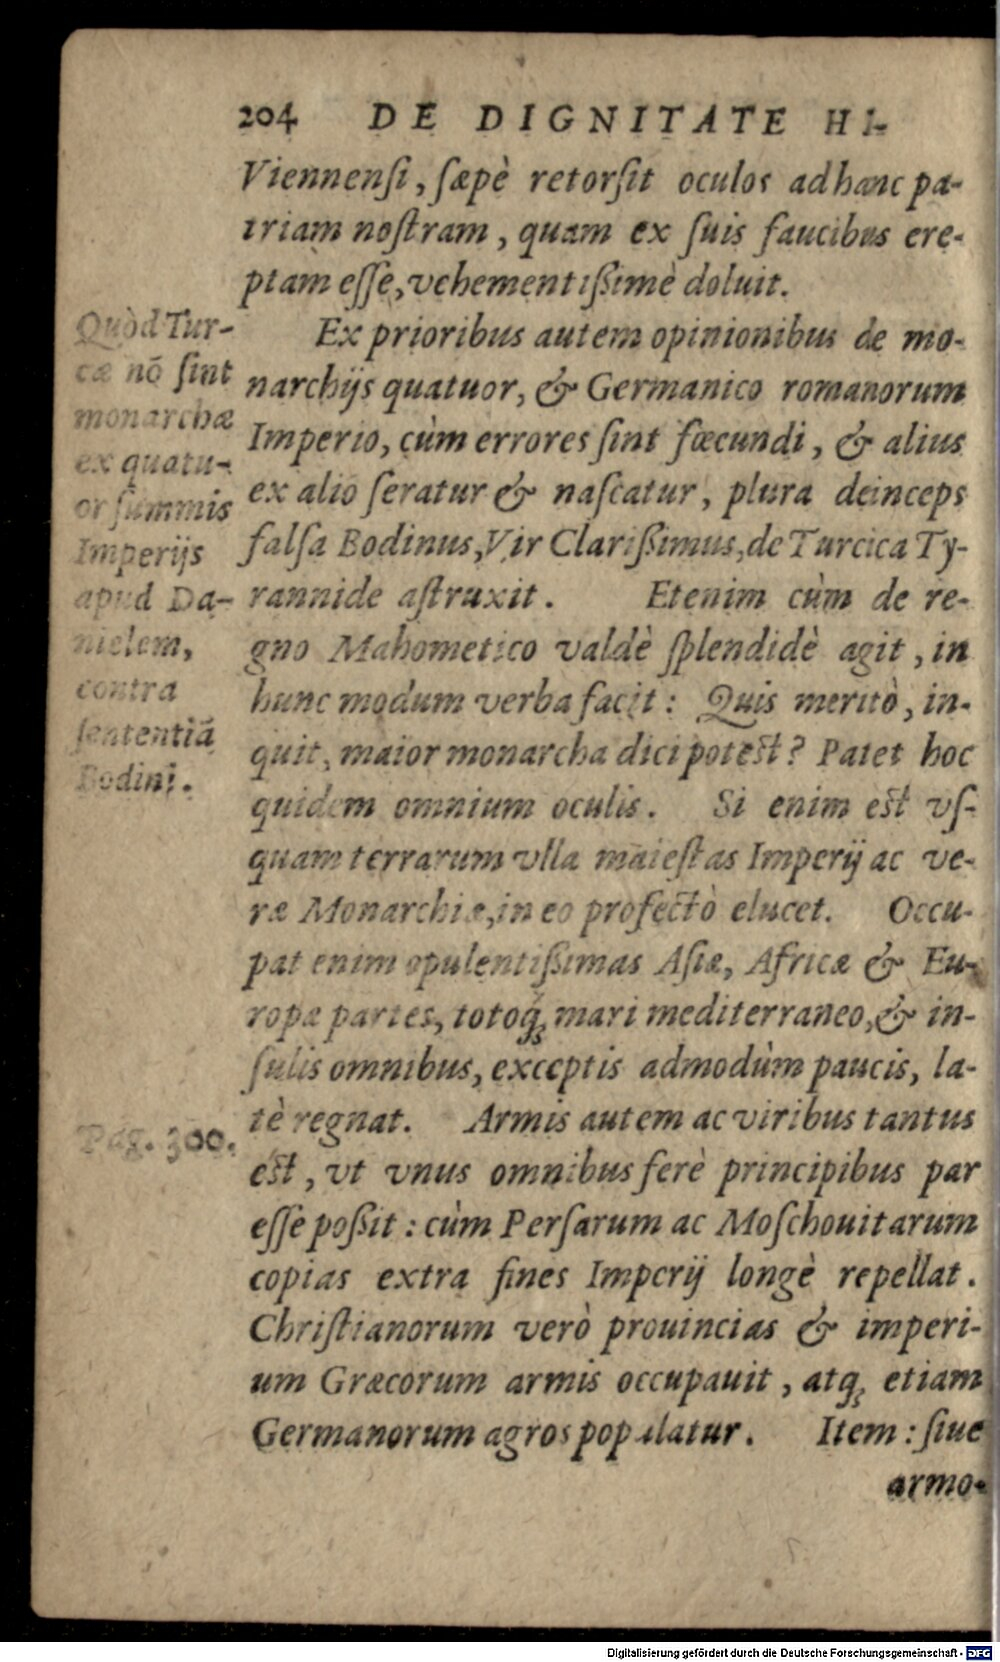 204 DE DIGNITATE HI-
Viennenſi, ſæpè retorſit oculos ad hanc pa-
triam noſtram, quam ex ſuis faucibus ere-
ptam eſſe, vehementißimè doluit.
Ex prioribus autem opinionibus de mo-
narchijs quatuor, & Germanico romanorum
Imperio, cùm errores ſint fœcundi, & alius
ex alio ſeratur & naſcatur, plura deinceps
falſa Bodinus, Vir Clarißimus, de Turcica Ty-
rannide aſtruxit. Etenim cùm de re-
gno Mahometico valdè ſplendidè agit, in
hunc modum verba facit: Quis meritò, in-
quit, maior monarcha dici poteſt? Patet hoc
quidem omnium oculis. Si enim eſt vſ-
quam terrarum vlla maieſtas Imperij ac ve-
ræ Monarchiæ, in eo profectò elucet. Occu-
pat enim opulentißimas Aſiæ, Africæ & Eu-
ropæ partes, totoq́ꝫ mari mediterraneo, & in-
ſulis omnibus, exceptis admodùm paucis, la-
tè regnat. Armis autem ac viribus tantus
eſt, vt vnus omnibus ferè principibus par
eſſe poßit: cùm Perſarum ac Moſchouitarum
copias extra fines Imperij longè repellat.
Chriſtianorum verò prouincias & imperi-
um Græcorum armis occupauit, atqꝫ etiam
Germanorum agros populatur. Item: ſiue
armo-
Quòd Tur-
cæ nō ſint
monarchæ
ex quatu-
or ſummis
Imperijs
apud Da-
nielem,
contra
ſententiā
Bodini.
Pag. 300.
Digitalisierung gefördert durch die Deutsche Forschungsgemeinschaft - DFG